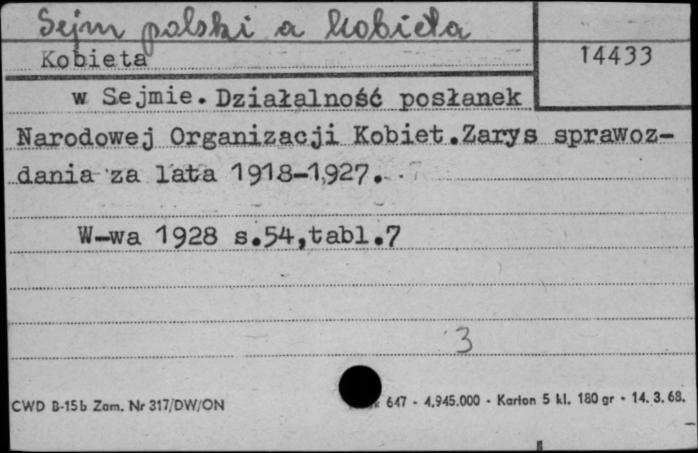 Sejm polski a kobieta
Kobieta
14433
w Sejmie. Działalność posłanek
Narodowej Organizacji Kobiet.Zarys sprawoz-
dania za lata 1918-1927.
W-wa 1928 s.54,tabl.7
3
CWD B-15b Zam. Nr 317/DW/ON
647 - 4.945.000 - Karton 5 kl. 180 gr - 14. 3. 68.